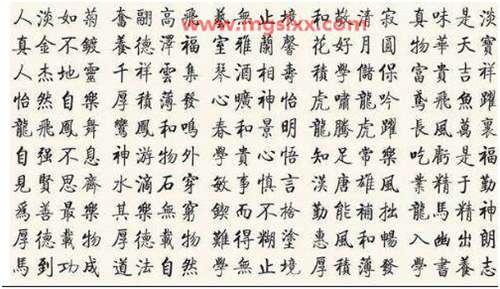 www.mgslxx.com
人淡如菊 奮翮高飛 無止境 和清寂 真味是淡
真金不鍍 養德澤福 室雅蘭馨 花好月圓 物華天寶
人杰地靈 千祥雲集 琴酒相壽 積學儲保 富貴吉祥
怡然自樂 厚積薄發 心曠神怡 虎嘯龍吟 鳶飛魚躍
龍飛鳳舞 鸞鳳和鳴 春和景明 龍騰虎躍 長風萬裏
自强不息 神游物外 學貴心悟 知足常樂 吃虧是福
見賢思齊 水滴石穿 敏事慎言 漢唐雄風 業精于勤
爲善最樂 其樂無窮 鍥而不捨 勤能補拙 龍馬精神
厚德載物 厚德載物 難得糊塗 惠風和暢 入幽出朗
馬到功成 道法自然 學無止境 厚積薄發 學書養志